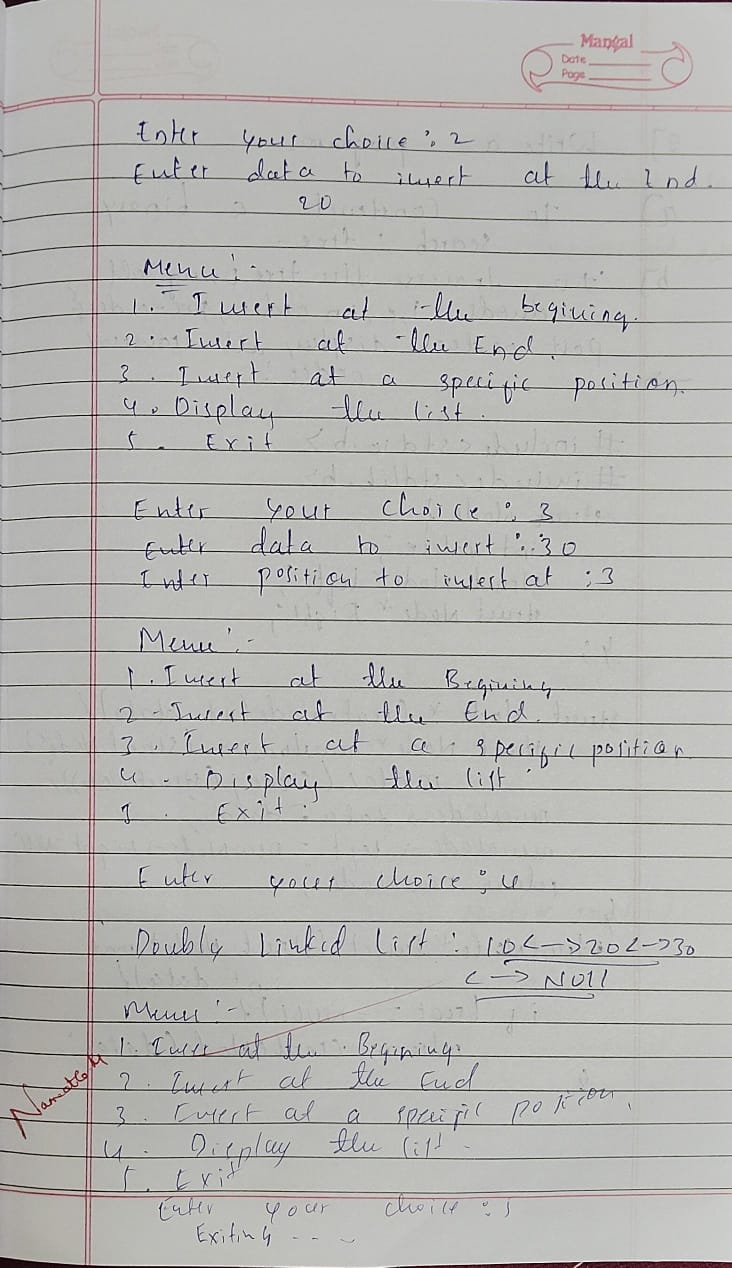 Mangal
Date
Page
Enter your choice : 2
Enter data to insert at the End.
20
Menu :-
1. Insert at the begining.
2. Insert at the End.
3. Insert at a specific position.
4. Display the list.
5. Exit
Enter your choice : 3
Enter data to insert : 30
Enter position to insert at : 3
Menu :-
1. Insert at the Begining
2. Insert at the End.
3. Insert at a specific position
4. Display the list
5. Exit.
Enter your choice : 4
Doubly Linked list : 10<->20<->30
<-> NUll
Menu :-
1. Inser at the Begining.
2. Insert at the End
3. Insert at a specific position.
4. Display the list.
5. Exit
Enter your choice : 5
Exiting - - -